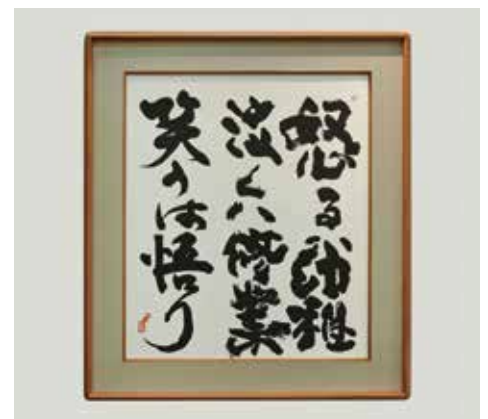 怒る幼稚
泣くハ修業
笑うは悟り